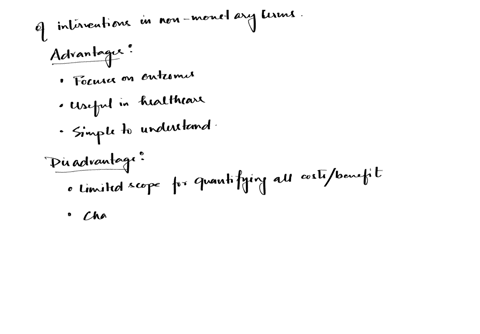 of interventions in non-monetary terms.
Advantages:
• Focuses on outcomes
• Useful in healthcare
• Simple to understand.
Disadvantage:
• Limited scope for quantifying all costs/benefit
• Cha